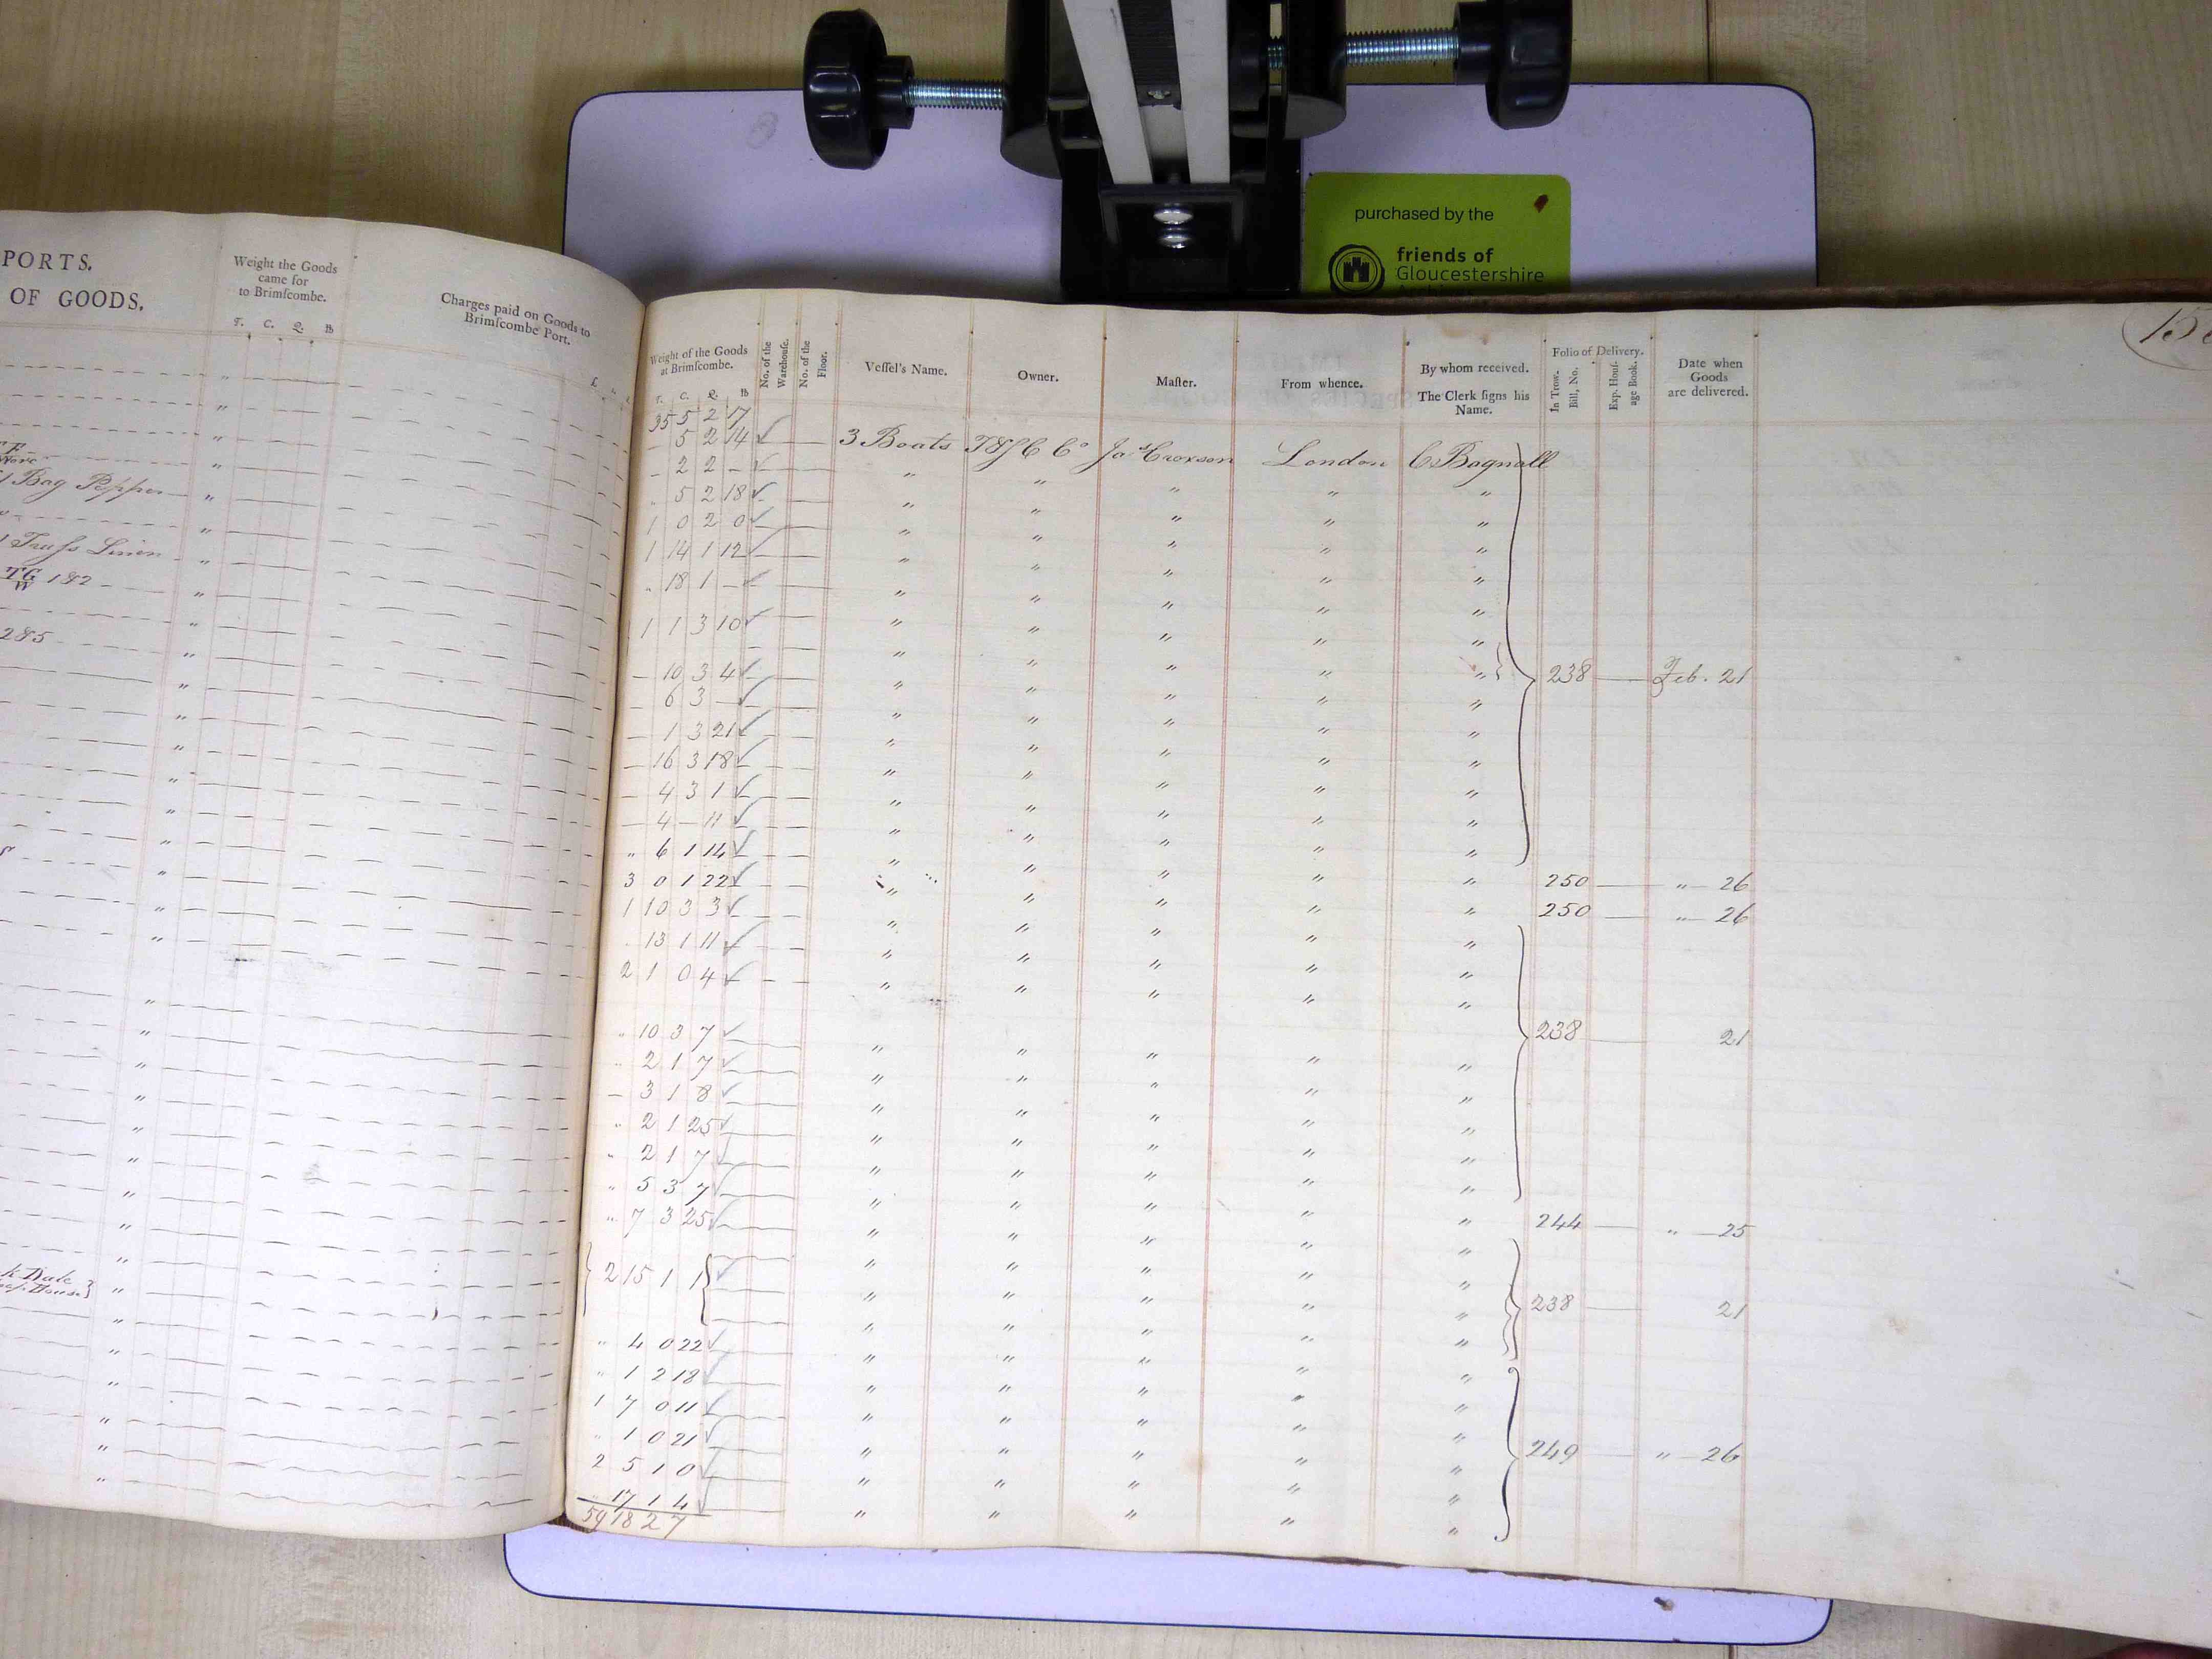 purchased by the
friends of
Gloucestershire
PORTS.
OF GOODS.
Weight the Goods
came for
to Brimſcombe.
T. C. Q. lb
Charges paid on Goods to
Brimſcombe Port.
1 Bag Pepper
1 Truſs Linen
TG 182
W
285
k Dale
Weight of the Goods
at Brimſcombe.
T. C. Q. lb
No. of the
Warehouſe.
No. of the
Floor.
Veſſel's Name.
Owner.
Maſter.
From whence.
By whom received.
The Clerk ſigns his
Name.
Folio of Delivery.
In Trow.
Bill, No.
Exp. Houſ-
age Book.
Date when
Goods
are delivered.
35 5 2 17
- 5 2 14 ✓ 3 Boats T&SC Co Jas Croxson London C. Bagnall
- 2 2 - ✓ " " " " "
" 5 2 18 ✓ " " " " "
1 0 2 0 ✓ " " " " "
1 14 1 12 ✓ " " " " "
" 18 1 - ✓ " " " " "
1 1 3 10 ✓ " " " " "
- 10 3 4 ✓ " " " " " 238 Feb. 21
- 6 3 - ✓ " " " " "
- 1 3 21 ✓ " " " " "
- 16 3 18 ✓ " " " " "
- 4 3 1 ✓ " " " " "
- 4 - 11 ✓ " " " " "
" 6 1 14 ✓ " " " " "
3 0 1 22 ✓ " " " " " 250 " 26
1 10 3 3 ✓ " " " " " 250 " 26
13 1 11 ✓ " " " " "
2 1 0 4 ✓ " " " " "
" 10 3 7 ✓ " " " " " 238 21
" 2 1 7 ✓ " " " " "
- 3 1 8 ✓ " " " " "
" 2 1 25 ✓ " " " " "
" 2 1 7 ✓ " " " " "
" 5 3 7 ✓ " " " " "
" 7 3 25 ✓ " " " " " 244 " 25
2 15 1 1 ✓ " " " " " 238 21
" 4 0 22 ✓ " " " " "
" 1 2 18 ✓ " " " " "
1 7 0 11 ✓ " " " " "
" 1 0 21 ✓ " " " " "
2 5 1 0 ✓ " " " " " 249 " 26
" 17 1 4 ✓ " " " " "
59 18 2 7